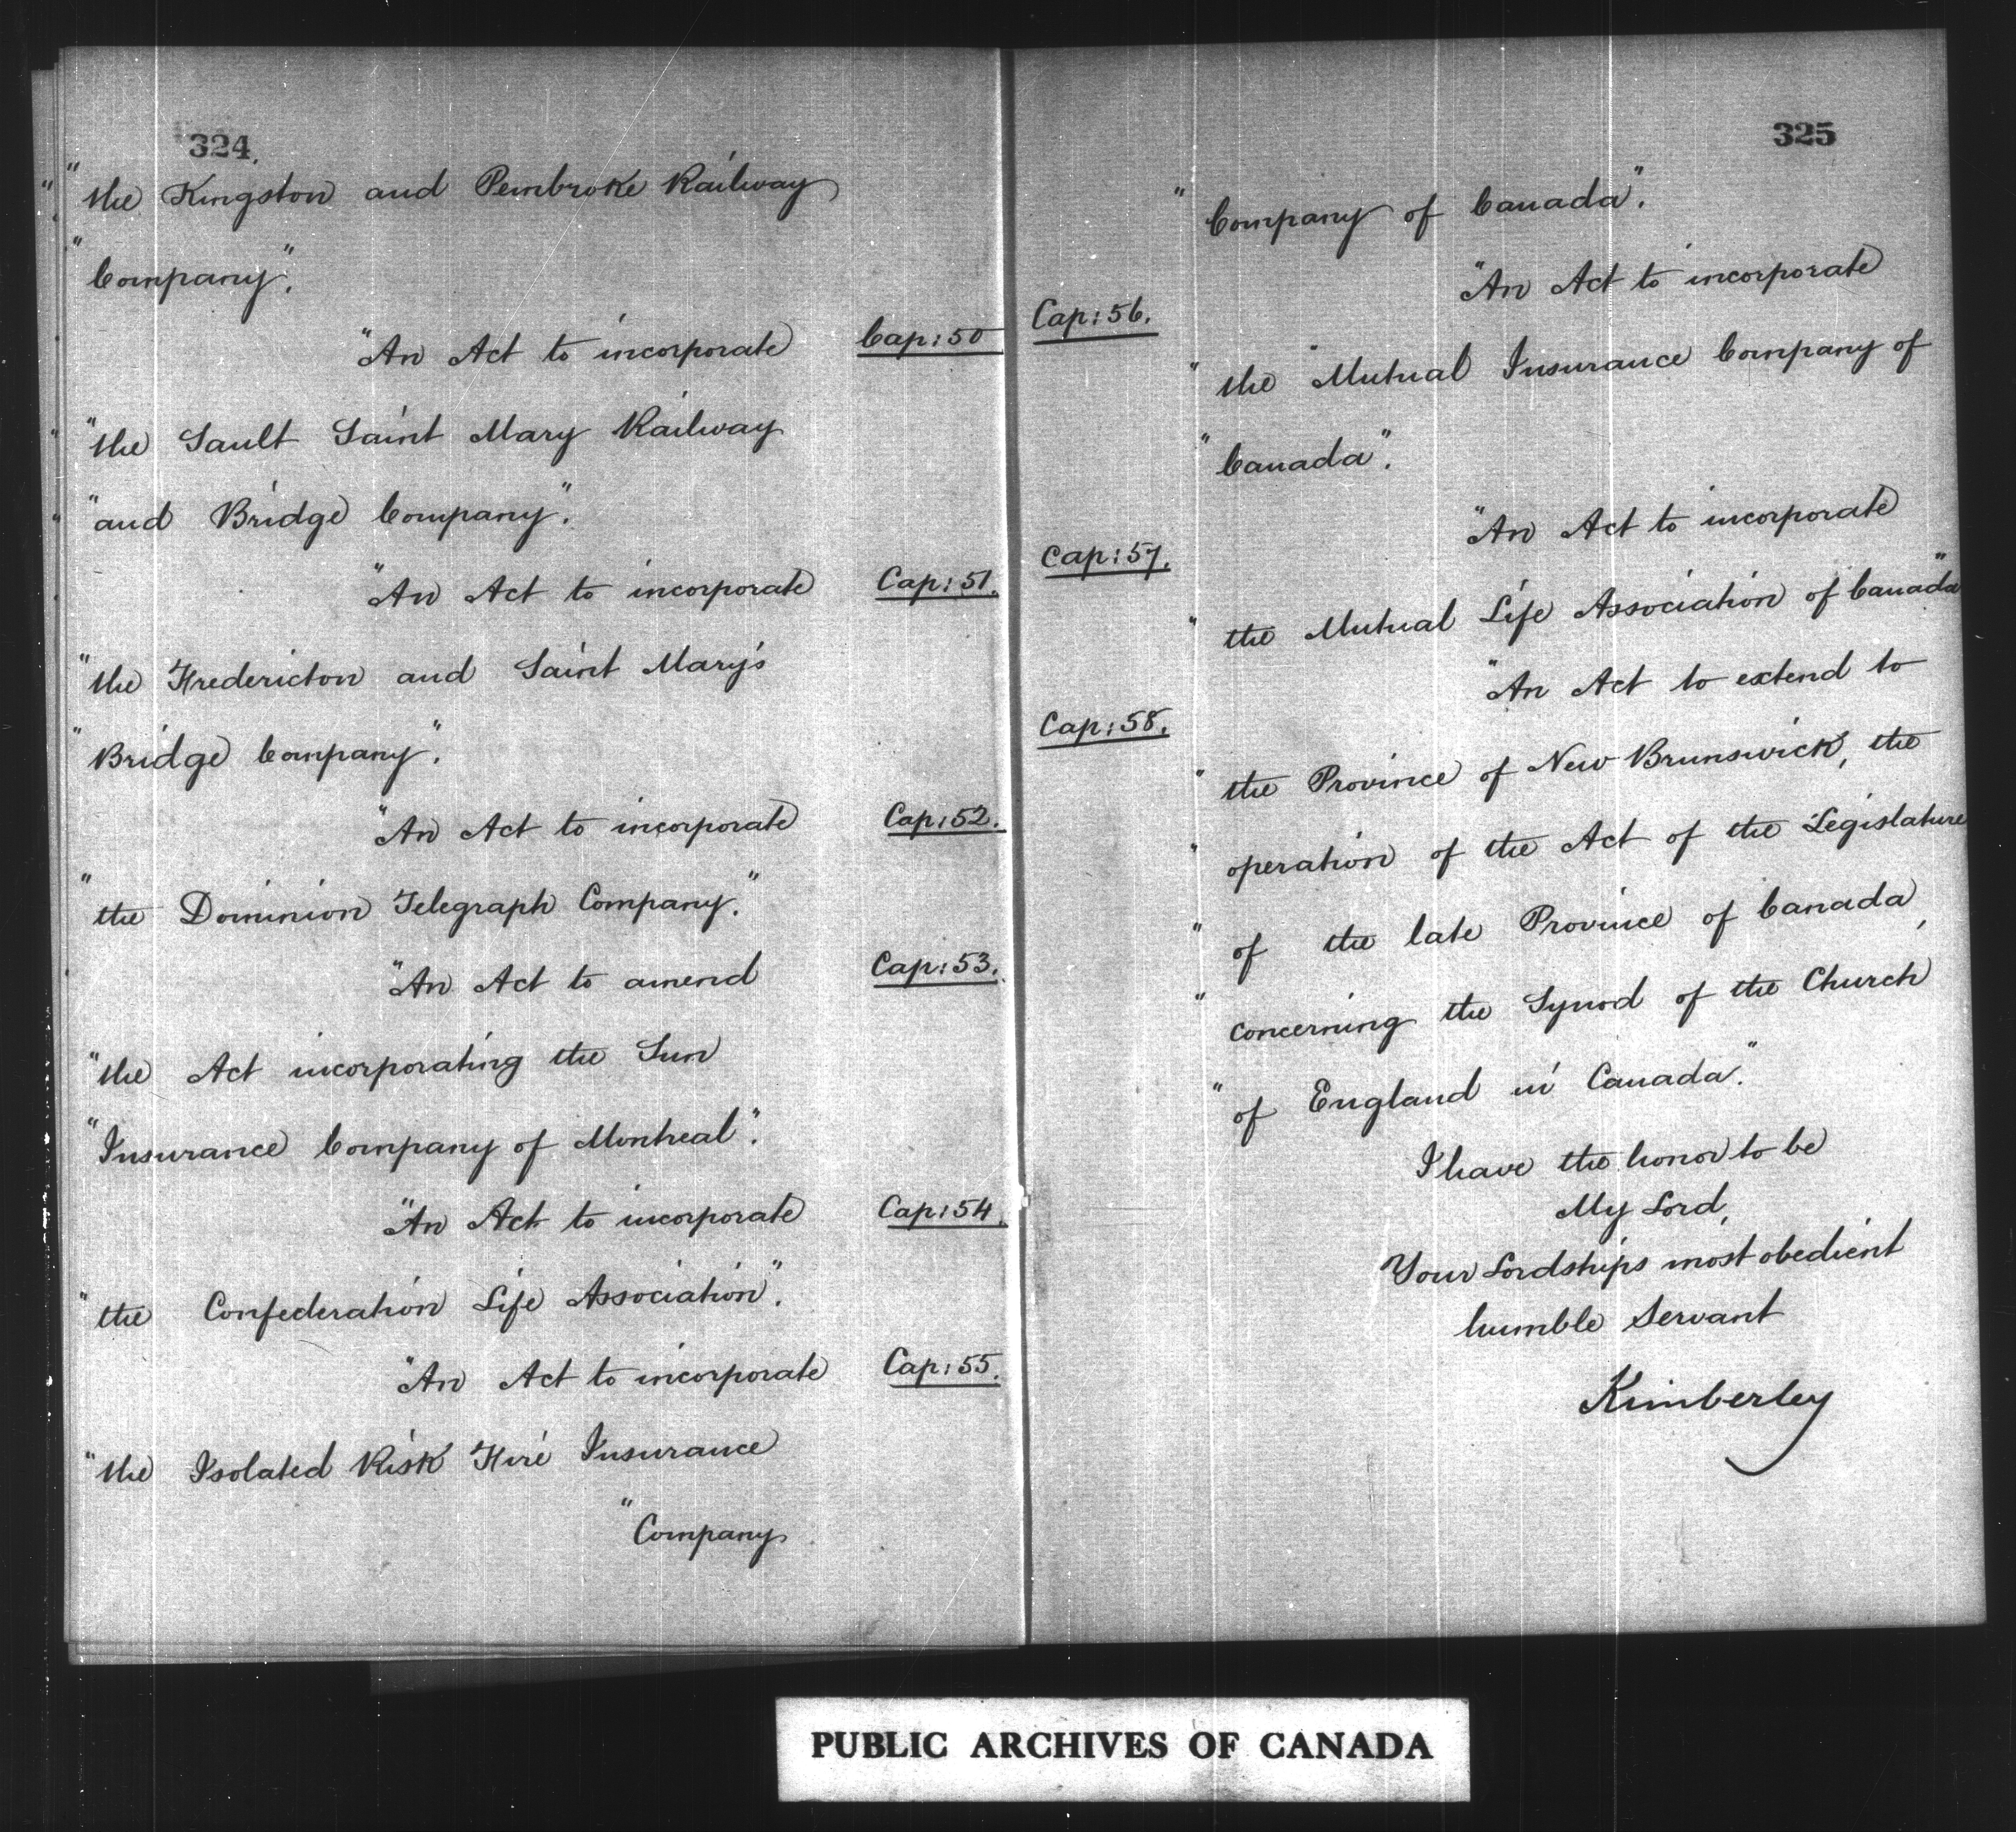 324.
" the Kingston and Pembroke Railway
" Company".
"An Act to incorporate Cap: 50
" the Sault Saint Mary Railway
" and Bridge Company".
"An Act to incorporate Cap: 51.
" the Fredericton and Saint Mary's
" Bridge Company".
"An Act to incorporate Cap: 52.
" the Dominion Telegraph Company."
"An Act to amend Cap: 53.
" the Act incorporating the Sun
" Insurance Company of Montreal".
"An Act to incorporate Cap: 54.
" the Confederation Life Association".
"An Act to incorporate Cap: 55.
" the Isolated Risk Fire Insurance
" Company
325
" Company of Canada".
"An Act to incorporate
Cap: 56.
" the Mutual Insurance Company of
" Canada".
"An Act to incorporate
Cap: 57.
" the Mutual Life Association of Canada"
"An Act to extend to
Cap: 58.
" the Province of New Brunswick, the
" operation of the Act of the Legislature
" of the late Province of Canada,
" concerning the Synod of the Church
" of England in Canada."
I have the honor to be
My Lord,
Your Lordships most obedient
humble Servant
Kimberley
PUBLIC ARCHIVES OF CANADA